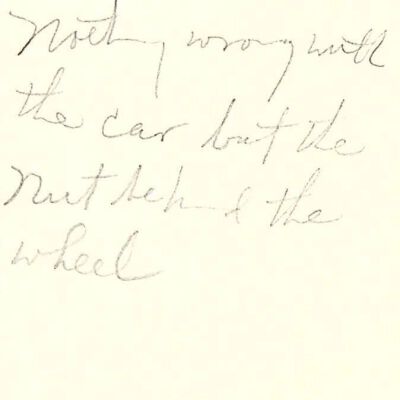 Nothing wrong with
the car but the
Nut behind the
wheel